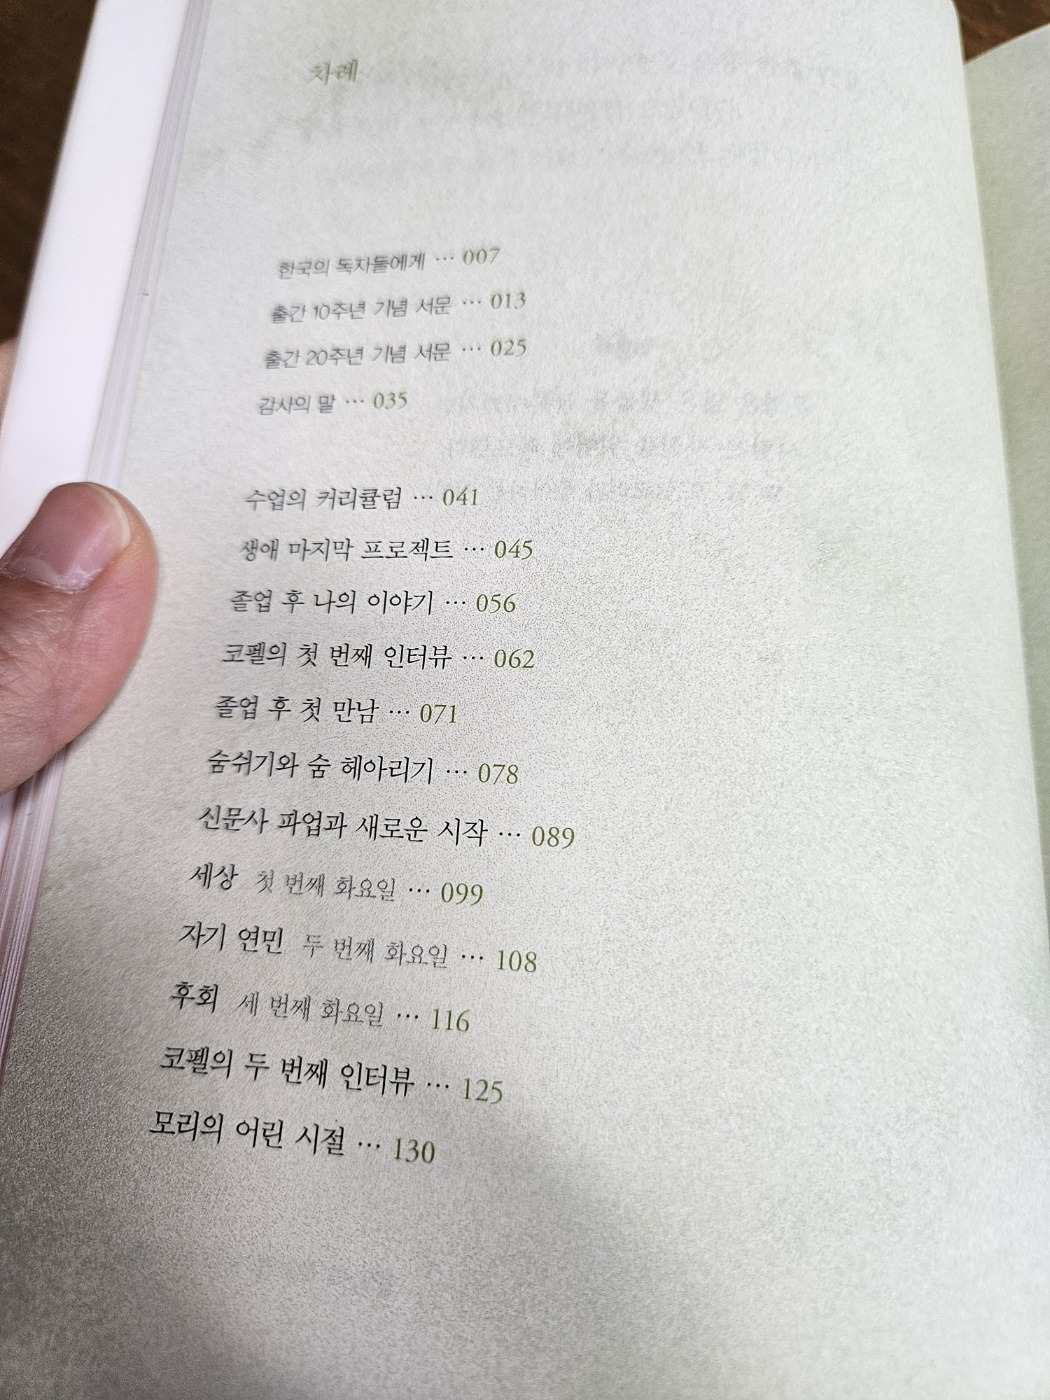 차례
한국의 독자들에게 … 007
출간 10주년 기념 서문 … 013
출간 20주년 기념 서문 … 025
감사의 말 … 035
수업의 커리큘럼 … 041
생애 마지막 프로젝트 … 045
졸업 후 나의 이야기 … 056
코펠의 첫 번째 인터뷰 … 062
졸업 후 첫 만남 … 071
숨쉬기와 숨 헤아리기 … 078
신문사 파업과 새로운 시작 … 089
세상 첫 번째 화요일 … 099
자기 연민 두 번째 화요일 … 108
후회 세 번째 화요일 … 116
코펠의 두 번째 인터뷰 … 125
모리의 어린 시절 … 130